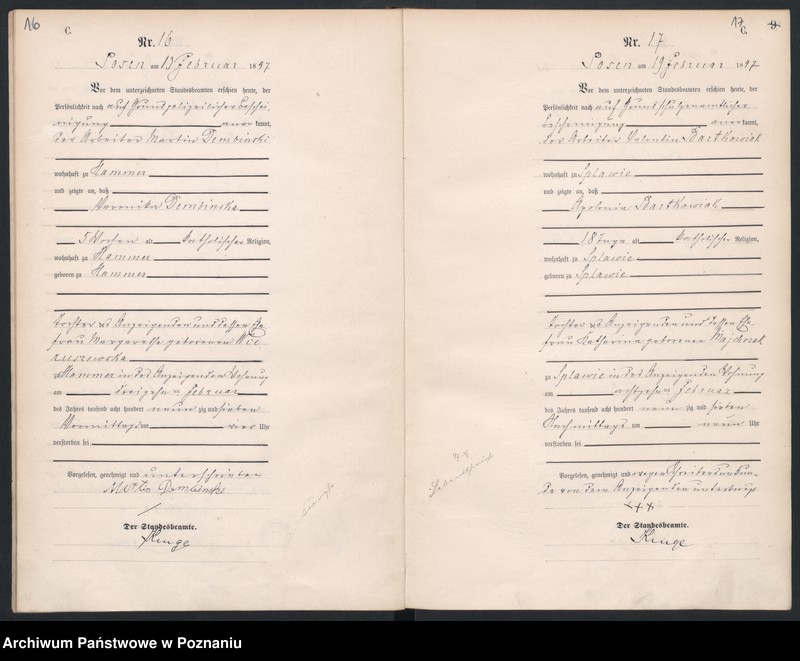 16
C.
Nr. 16
Posen am 13 Februar 1897
Vor dem unterzeichneten Standesbeamten erschien heute, der
Persönlichkeit nach auf Grund polizeilicher beschei-
nigung anerkannt,
der Arbeiter Martin Dembinski
wohnhaft zu Hammer
und zeigte an, daß
Veronika Dembinska
5 Wochen alt katholischer Religion,
wohnhaft zu Hammer
geboren zu Hammer
Tochter des Anzeigenden und dessen Ehe-
frau Margarethe geborenen
zu Hammer in des Anzeigenden Wohnung
am dreizehn Februar
des Jahres tausend acht hundert neun zig und sieben
Vormittags um Uhr
verstorben sei
Vorgelesen, genehmigt und unterschrieben
Martin Dembinski
Der Standesbeamte.
17
C.
9
Nr. 17
Posen am 19 Februar 1897
Vor dem unterzeichneten Standesbeamten erschien heute, der
Persönlichkeit nach auf Grund schulzenamtlicher
bescheinigung anerkannt,
der Arbeiter Valentin Bartkowiak
wohnhaft zu Splawie
und zeigte an, daß
Apolonia Bartkowiak
18 Tage alt katholischer Religion,
wohnhaft zu Splawie
geboren zu Splawie
Tochter des Anzeigenden und dessen Ehe-
frau Katharina geborenen Majchrzak
zu Splawie in des Anzeigenden Wohnung
am achtzehn Februar
des Jahres tausend acht hundert neun zig und sieben
Nachmittags um neun Uhr
verstorben sei
Vorgelesen, genehmigt und wegen Schreibensunkun-
de von dem Anzeigenden unterkreuzt
+++
Der Standesbeamte.
Archiwum Państwowe w Poznaniu